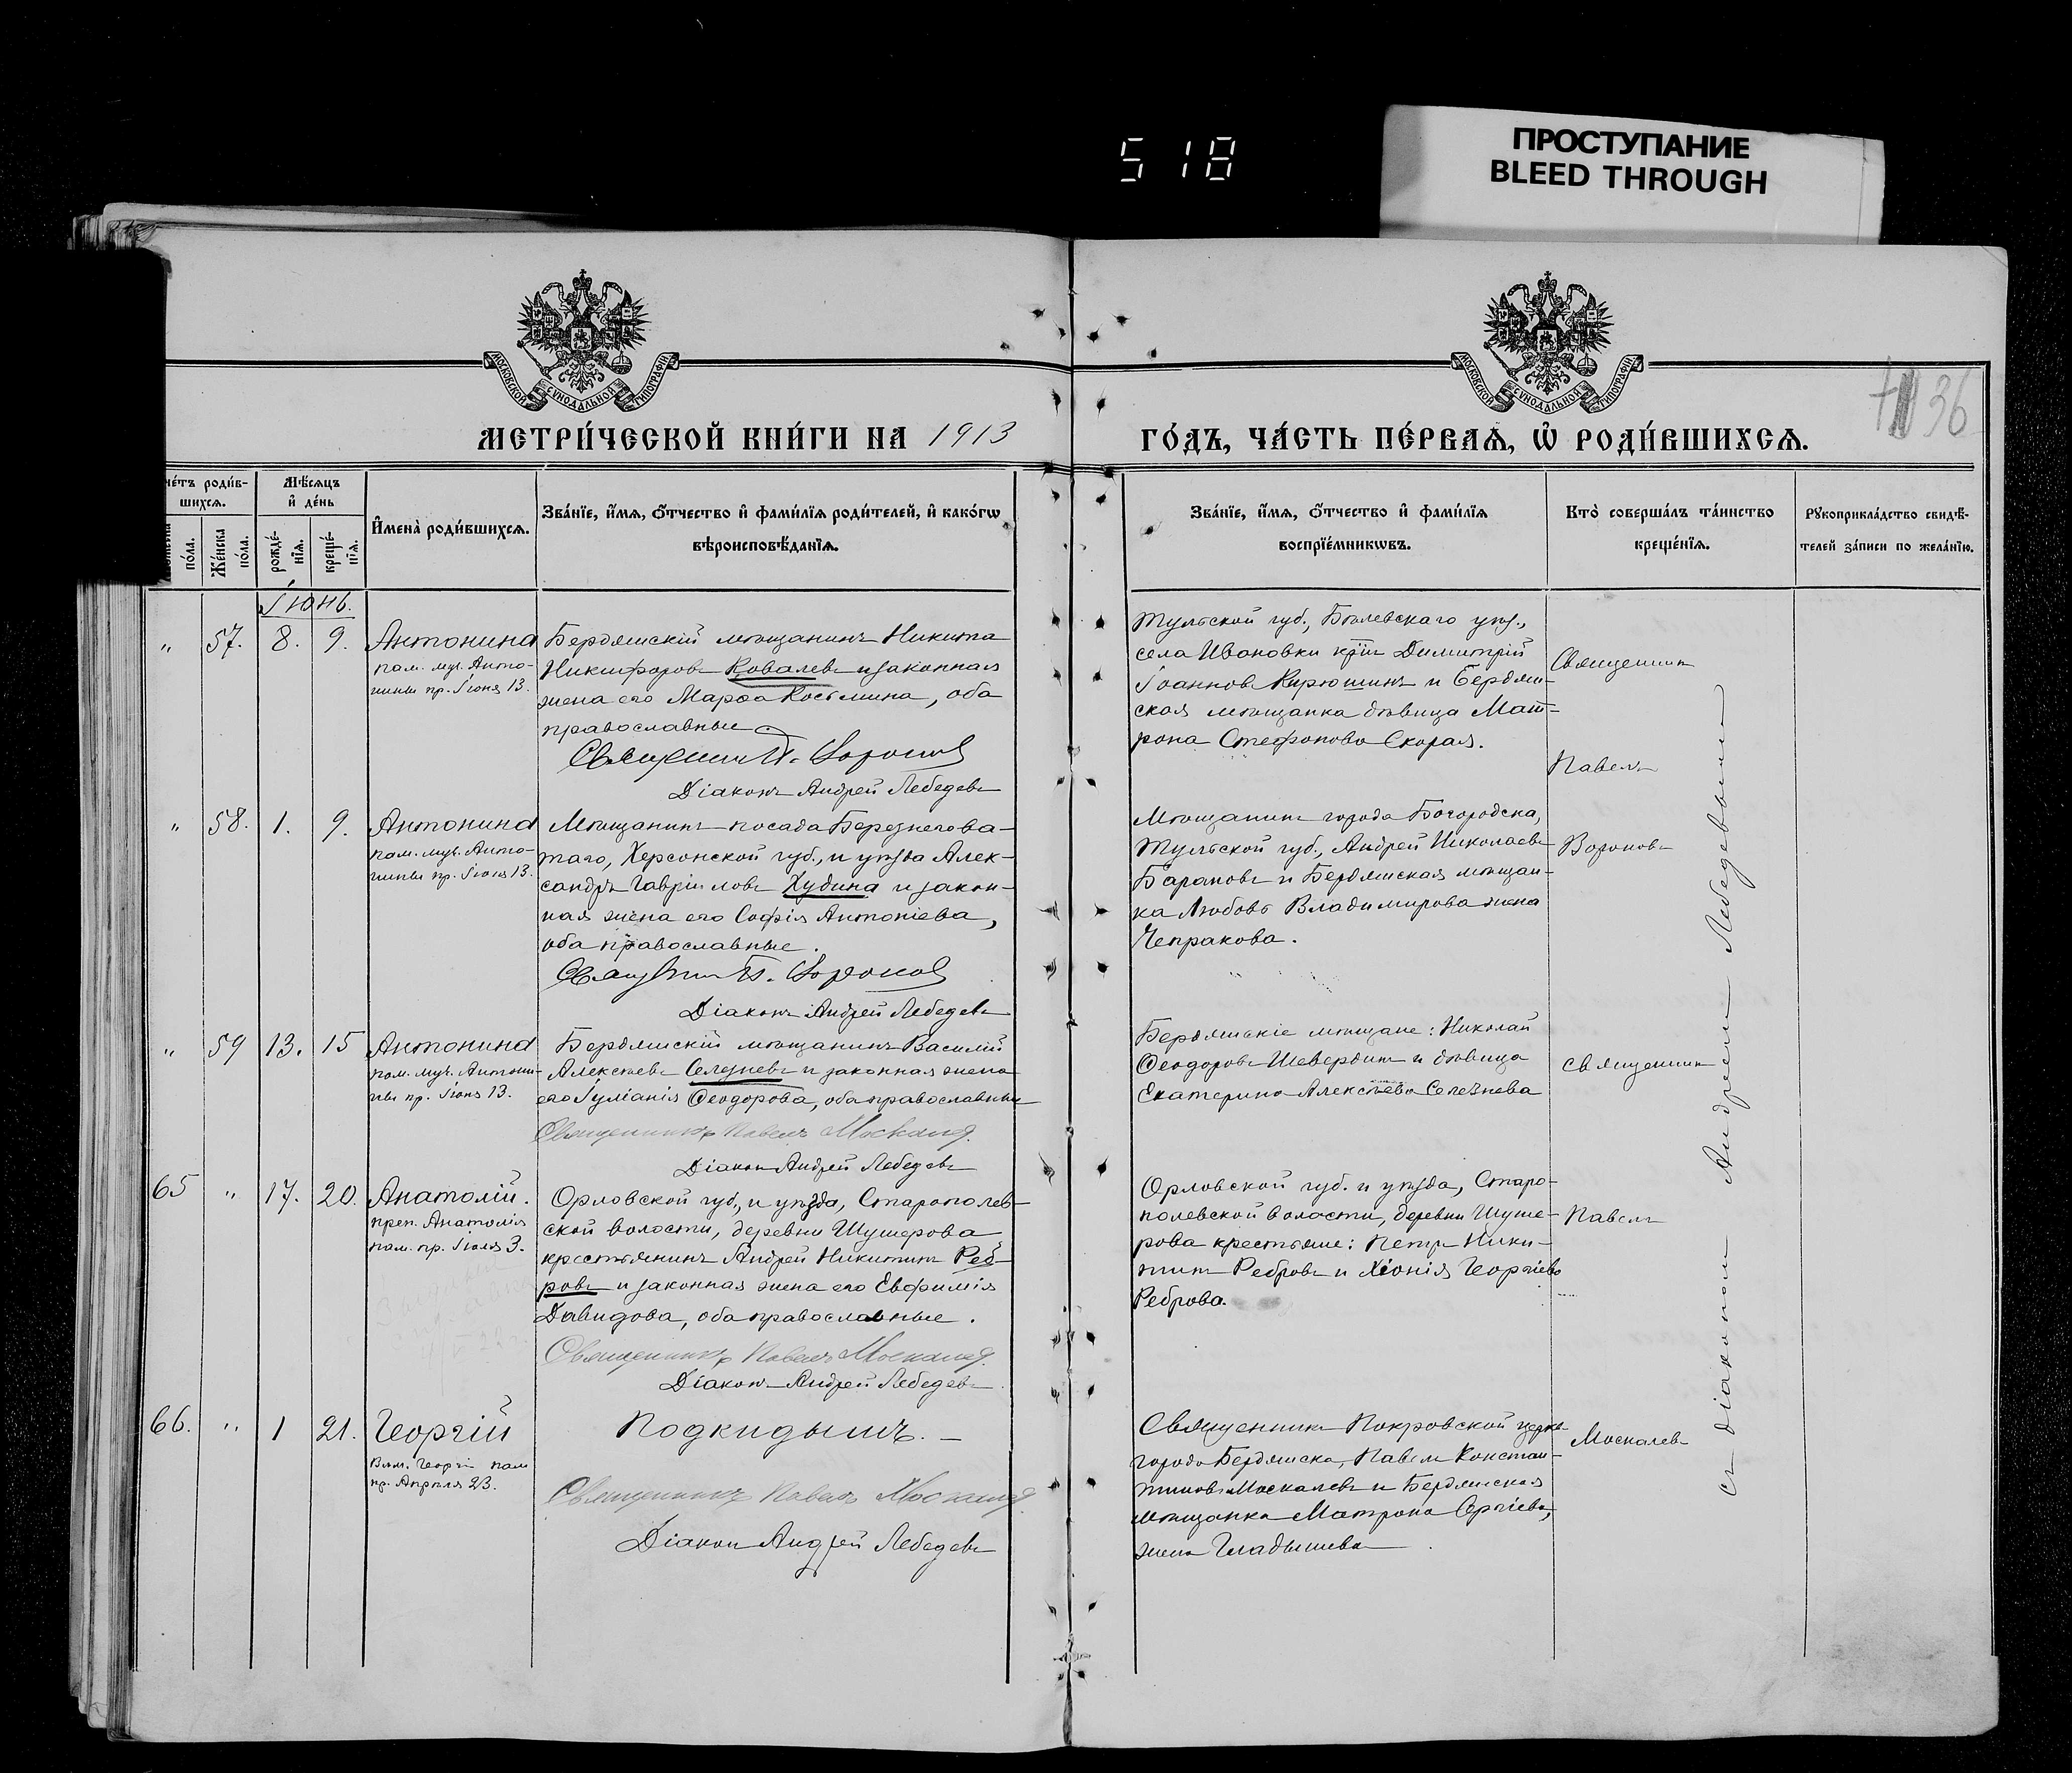 518
ПРОСТУПАНИЕ
BLEED THROUGH
МОСКОВСКОЙ СѴНОДАЛЬНОЙ ТИПОГРАФІИ
МОСКОВСКОЙ СѴНОДАЛЬНОЙ ТИПОГРАФІИ
36
МЕТРИ́ЧЕСКОЙ КНИ́ГИ НА 1913
ГО́ДЪ, ЧА́СТЬ ПЕ́РВАѦ, Ѡ҆ РОДИ́ВШИХСѦ.
че́тъ роди́в-
шихсѧ.
по́ла.
Же́нска
по́ла.
Мѣ́сѧцъ
и҆ де́нь
рожде́-
нїѧ.
креще́-
нїѧ.
И҆мена̀ роди́вшихсѧ.
Зва́нїе, и҆́мѧ, ѻ҆́тчество и҆ фами́лїѧ роди́телей, и҆ како́гѡ
вѣроисповѣ́данїѧ.
Зва́нїе, и҆́мѧ, ѻ҆́тчество и҆ фами́лїѧ
воспрїе́мникѡвъ.
Кто̀ соверша́лъ та́инство
креще́нїѧ.
Рꙋкоприкла́дство свидѣ́-
телей за́писи по жела́нїю.
Іюнь.
" 57. 8. 9. Антонина
пам. муч. Анто-
нины пр. Іюня 13.
Бердянскій мѣщанинъ Никита
Никифоровъ Ковалевъ и законная
жена его Марѳа Косьмина, оба
православные
Священникъ П. Вороновъ
Діаконъ Андрей Лебедевъ
Тульской губ., Бѣлевскаго уѣз.,
села Ивановки кр-нъ Димитрій
Іоанновъ Кирюшинъ и Бердян-
ская мѣщанка дѣвица Мат-
рона Стефанова Скорая.
Священникъ
Павелъ
" 58. 1. 9. Антонина
пам. муч. Анто-
нины пр. Іюня 13.
Мѣщанинъ посада Березнегова-
таго, Херсонской губ., и уѣзда Алек-
сандръ Гавріиловъ Худина и закон-
ная жена его Софія Антоніева,
оба православные.
Священникъ П. Вороновъ
Діаконъ Андрей Лебедевъ
Мѣщанинъ города Богородска,
Тульской губ., Андрей Николаевъ
Барановъ и Бердянская мѣщан-
ка Любовь Владимирова жена
Чепракова.
Вороновъ
" 59 13. 15 Антонина
пам. муч. Антони-
ны пр. Іюня 13.
Бердянскій мѣщанинъ Василій
Алексѣевъ Селезневъ и законная жена
его Іуліанія Ѳеодорова, оба православные
Священникъ Павелъ Москалевъ
Діаконъ Андрей Лебедевъ
Бердянскіе мѣщане: Николай
Ѳеодоровъ Шевердинъ и дѣвица
Екатерина Алексѣева Селезнева
священникъ
65 " 17. 20. Анатолій.
преп. Анатолія
пам. пр. Іюля 3.
Орловской губ., и уѣзда, Старополев-
ской волости, деревни Шушерова
крестьянинъ Андрей Никитинъ Реб-
ровъ и законная жена его Евфимія
Давидова, оба православные.
Священникъ Павелъ Москалевъ
Діаконъ Андрей Лебедевъ
Орловской губ. и уѣзда, Старо-
полевской волости, деревни Шуше-
рова крестьяне: Петръ Ники-
тинъ Ребровъ и Хіонія Георгіева
Реброва.
Павелъ
66. " 1 21. Георгій
Влм. Георгія пам
пр. Апрѣля 23.
Подкидышъ.
Священникъ Павелъ Москалевъ
Діаконъ Андрей Лебедевъ
Священникъ Покровской церкви
города Бердянска, Павелъ Констан-
тиновъ Москалевъ и Бердянская
мѣщанка Матрона Сергіева,
жена Гладышева
Москалевъ
съ діакономъ Андреемъ Лебедевымъ